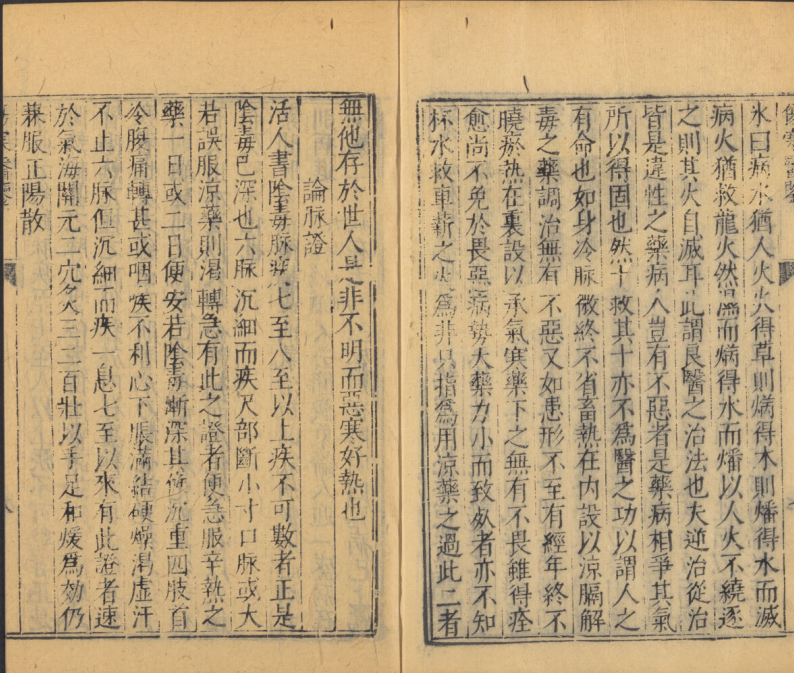 氷曰病水猶人火火得草則焫得木則燔得水而滅
病火猶救龍火然得濕而焫得水而燔以人火不繞逐
之則其火自滅耳此謂良醫之治法也夫逆治從治
皆是違性之藥病人豈有不惡者是藥病相爭其氣
所以得固也然十救其十亦不爲醫之功以謂人之
有命也如身冷脉微終不省畜熱在内設以凉膈解
毒之藥調治無有不惡又如患形不至有經年終不
曉瘀熱在裏設以承氣寒藥下之無有不畏雖得痊
愈尚不免於畏惡病勢大藥力小而致𣦸者亦不知
杯水救車薪之火爲非只指爲用凉藥之過此二者
無他存於世人是非不明而惡寒好熱也
論脉證
活人書隂毒脉疾七至八至以上疾不可數者正是
隂毒巳深也六脉沉細而疾尺部斷小寸口脉或大
若誤服凉藥則渴轉急有此之證者便急服辛熱之
藥一日或二日便安若隂毒漸深其候沉重四肢首
冷腹痛轉甚或咽疾不利心下脹滿結硬燥渴虛汗
不止六脉但沉細而疾一息七至以來有此證者速
於氣海關元二穴灸三二百壯以手足和煖爲効仍
兼服正陽散
傷寒醫鑒